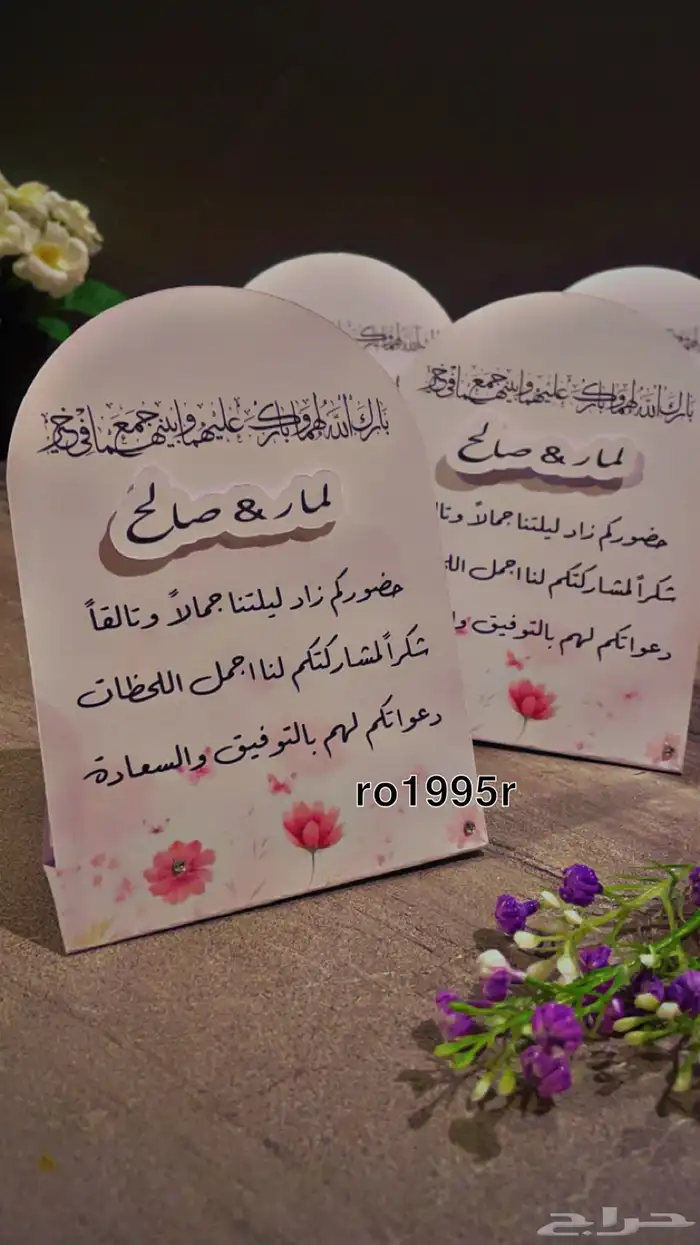 بارك الله لهما وبارك عليهما وجمع بينهما في خير
لمار & صالح
حضوركم زاد ليلتنا جمالاً وتالقاً
شكراً لمشاركتكم لنا اجمل اللحظات
دعواتكم لهم بالتوفيق والسعادة
بارك الله لهما وبارك عليهما وجمع بينهما في خير
لمار & صالح
حضوركم زاد ليلتنا جمالاً وتا
شكراً لمشاركتكم لنا اجمل
دعواتكم لهم بالتوفيق
ro1995r
حراج